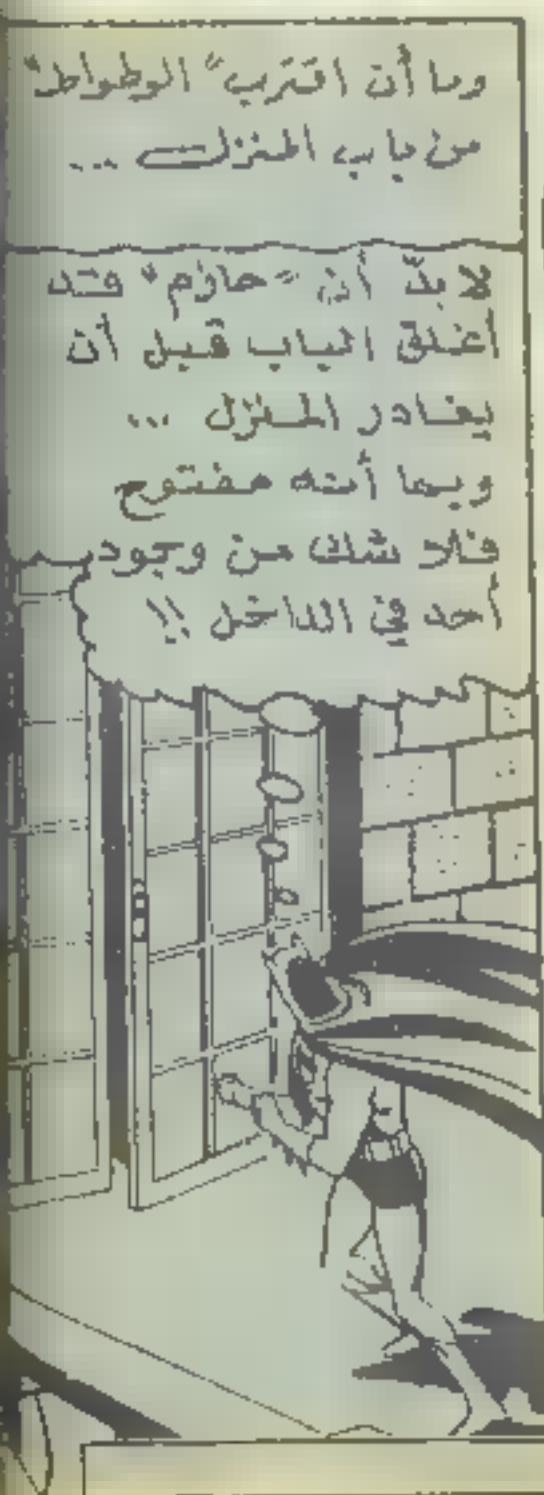 وما أن اقترب "الوطواط"
من باب المنزل ...
لا بدّ أن "حازم" قد
أغلق الباب قبل أن
يغادر المنزل ...
وبما أنه مفتوح
فلا شك من وجود
أحد في الداخل !!